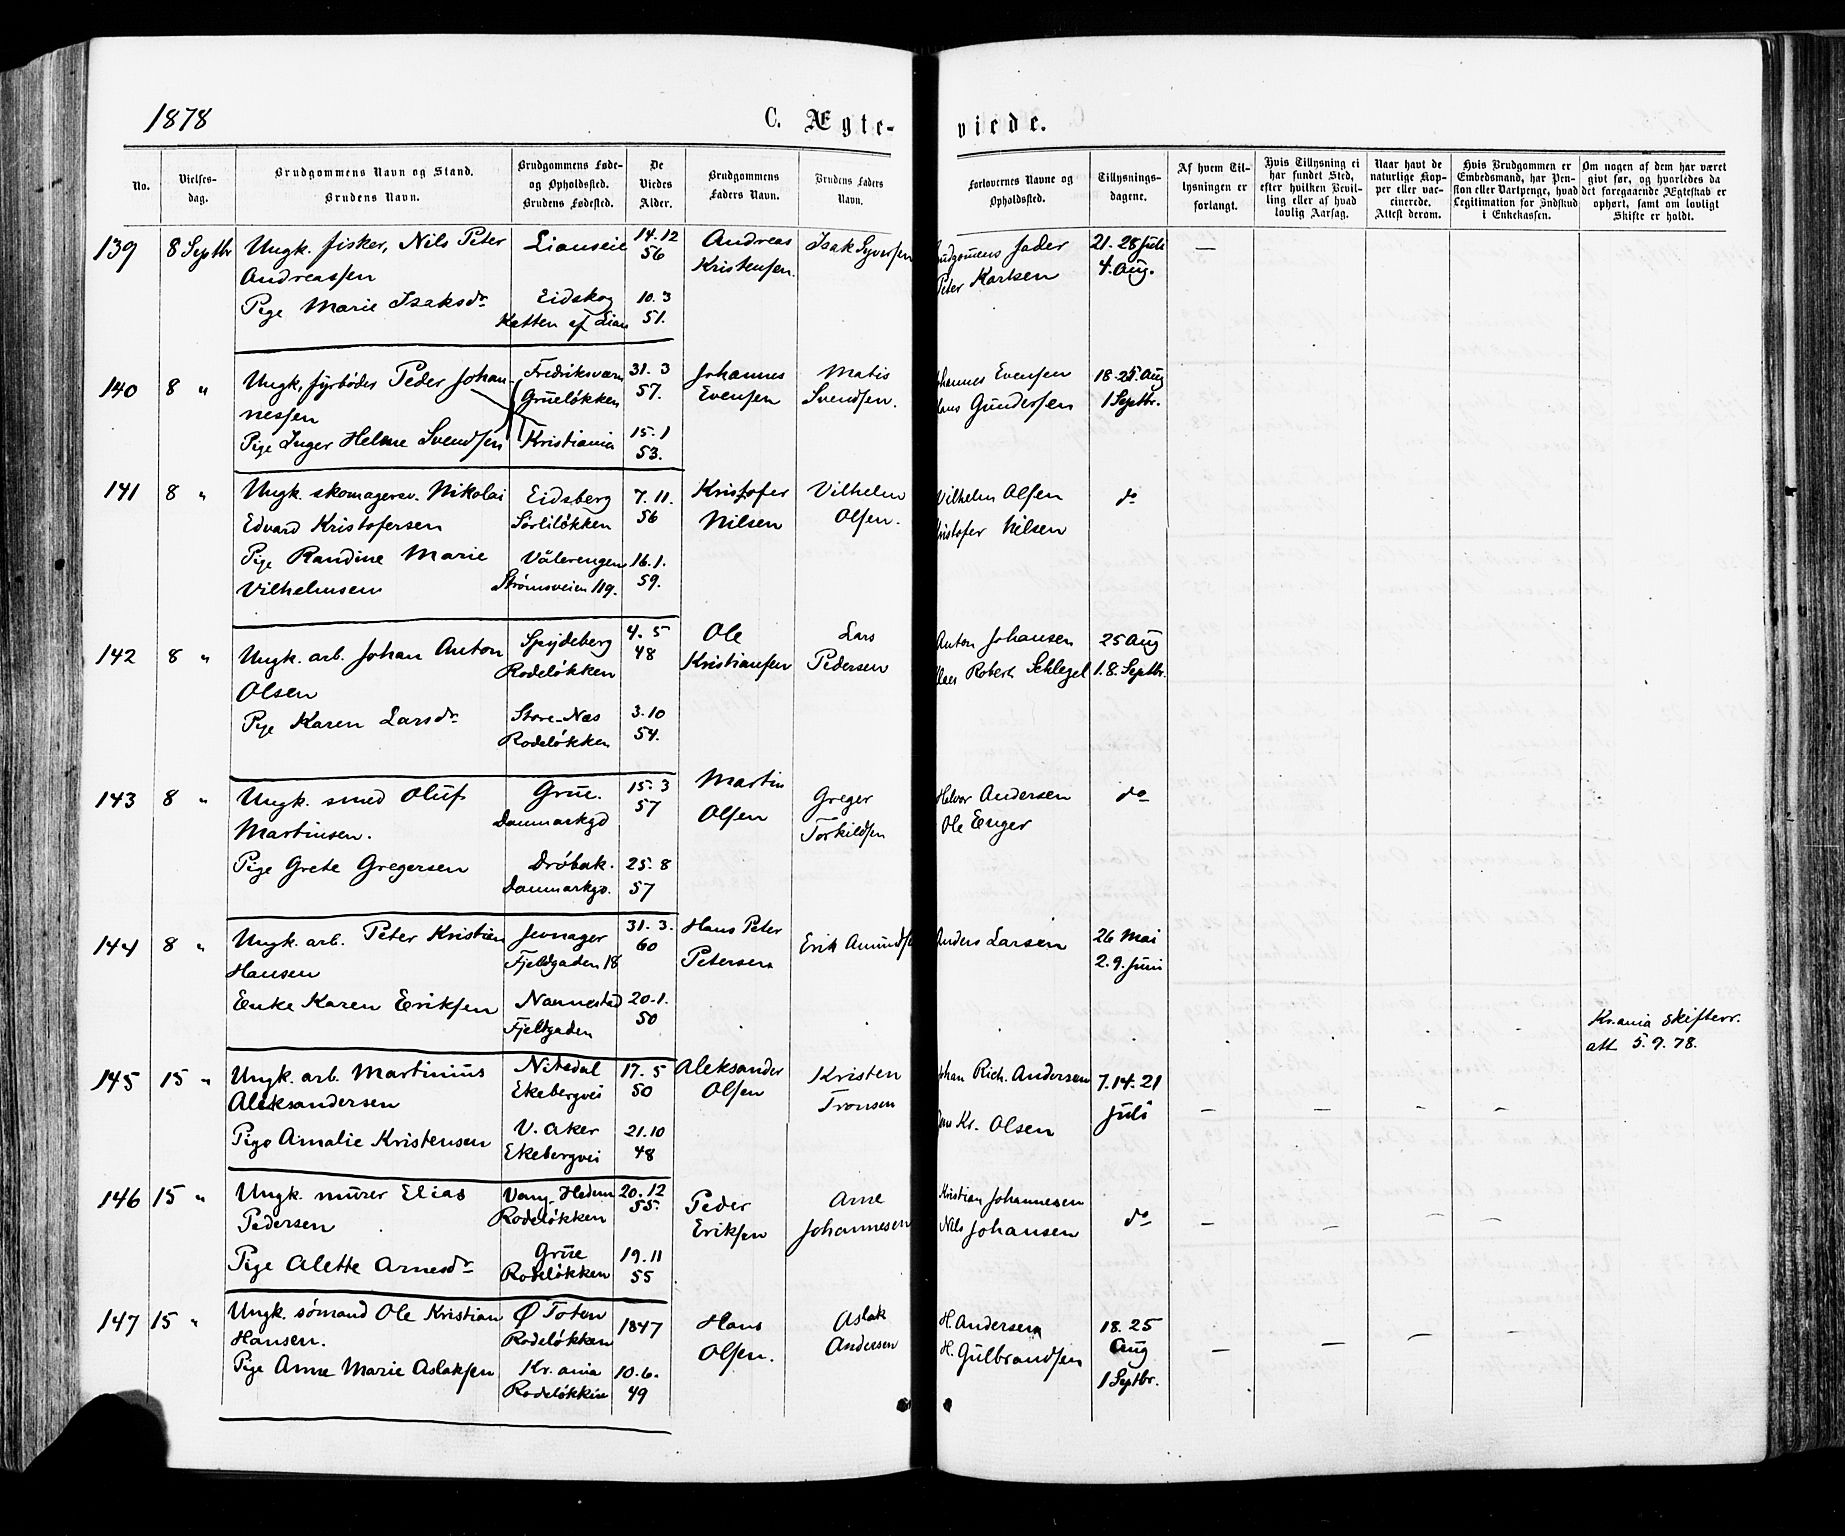 1878
C. Ægte-
viede.
No.
Vielses-
dag.
Brudgommens Navn og Stand.
Brudens Navn.
Brudgommens Føde-
og Opholdsted.
Brudens Fødested.
De
Viedes
Alder.
Brudgommens
Faders Navn.
Brudens Faders
Navn.
Forlovernes Navne og
Opholdsted.
Tillysnings-
dagene.
Af hvem Til-
lysningen er
forlangt.
Hvis Tillysning ei
har fundet Sted,
efter hvilken Bevil-
ling eller af hvad
lovlig Aarsag.
Naar havt de
naturlige Kop-
per eller vac-
cinerede.
Attest derom.
Hvis Brudgommen er
Embedsmand, har Pen-
sion eller Vartpenge, hvad
Legitimation for Indskud
i Enkekassen.
Om nogen af dem har været
givt før, og hvorledes da
det foregaaende Ægteskab er
ophørt, samt om lovligt
Skifte er holdt.
139
8 Septbr
Ungk. fisker, Nils Peter
Andreassen
Pige Marie Isaksdr
Lianseie
Eidskog
Katten af Lian
14.12
56
10.3
51.
Andreas
Kristensen.
Isak Syversen
Fader
Peter Karlsen
21. 28 Juli
4. Aug.
—
140
8 "
Ungk. fyrbøder Peder Johan-
nessen
Pige Inger Helene Svendsen
Fredriksværn
Grueløkken
Kristiania
31. 3
57.
15. 1
53.
Johannes
Evensen
Matis
Svendsen.
Johannes Evensen
Hans Gundersen
18. 25. Aug
1 Septbr.
141
8 "
Ungk. skomagersv. Nikolai
Edvard Kristofersen
Pige Randine Marie
Vilhelmsen
Eidsberg
Sørliløkken
Vålerengen
Strømsveien 119.
7. 11.
56
16.1.
59.
Kristofer
Nilsen
Vilhelm
Olsen.
Vilhelm Olsen
Kristofer Nilsen
do
142
8 "
Ungk. arb. Johan Anton
Olsen
Pige Karen Larsdr
Spydeberg
Rodeløkken
Store-Næs
Rodeløkken
4. 5
48
3.10
54.
Ole
Kristiansen
Lars
Pedersen
Anton Johansen
Robert Schlegel
25 Aug
1. 8. Septbr.
143
8 "
Ungk. smed Oluf
Martinsen.
Pige Grete Gregersen
Grue.
Danmarkgd
Drøbak.
Danmarkgd.
15. 3
57
25. 8
57
Martin
Olsen
Greger
Torkildsen
Halvor Andersen
Ole Enger
do
144
8 "
Ungk. arb. Peter Kristian
Hansen
Enke Karen Eriksen
Jevnager
Fjeldgaden 18
Nannestad
Fjeldgaden
31. 3.
60
20.1.
50
Hans Peter
Petersen
Erik Amundsen
Anders Larsen
26 Mai
2. 9. Juni
Kr.ania skifterr.
att 5. 9. 78.
145
15 "
Ungk. arb. Martinius
Aleksandersen
Pige Amalie Kristensen
Nitedal
Ekebergvei
V. Aker
Ekebergvei
17. 5
50
21.10
48
Aleksander
Olsen
Kristen
Tronsen
Johan Rich. Andersen
Kr. Olsen
7. 14. 21
Juli
— — — —
146
15 "
Ungk. murer Elias
Pedersen
Pige Alette Arnesdr
Vang, Hedem
Rodeløkken
Grue
Rodeløkken
20. 12
55.
19. 11
55
Peder
Eriksen
Arne
Johannesen
Kristian Johannesen
Nils Johansen
do
— — — —
147
15 "
Ungk. sømand Ole Kristian
Hansen.
Pige Anne Marie Aslaksen
Ø Toten
Rodeløkken
Kr.ania
Rodeløkken
1847
10.6.
49
Hans
Olsen.
Aslak
Andersen
H. Andersen
H. Gulbrandsen
18. 25
Aug
1 Septbr.
— — — —